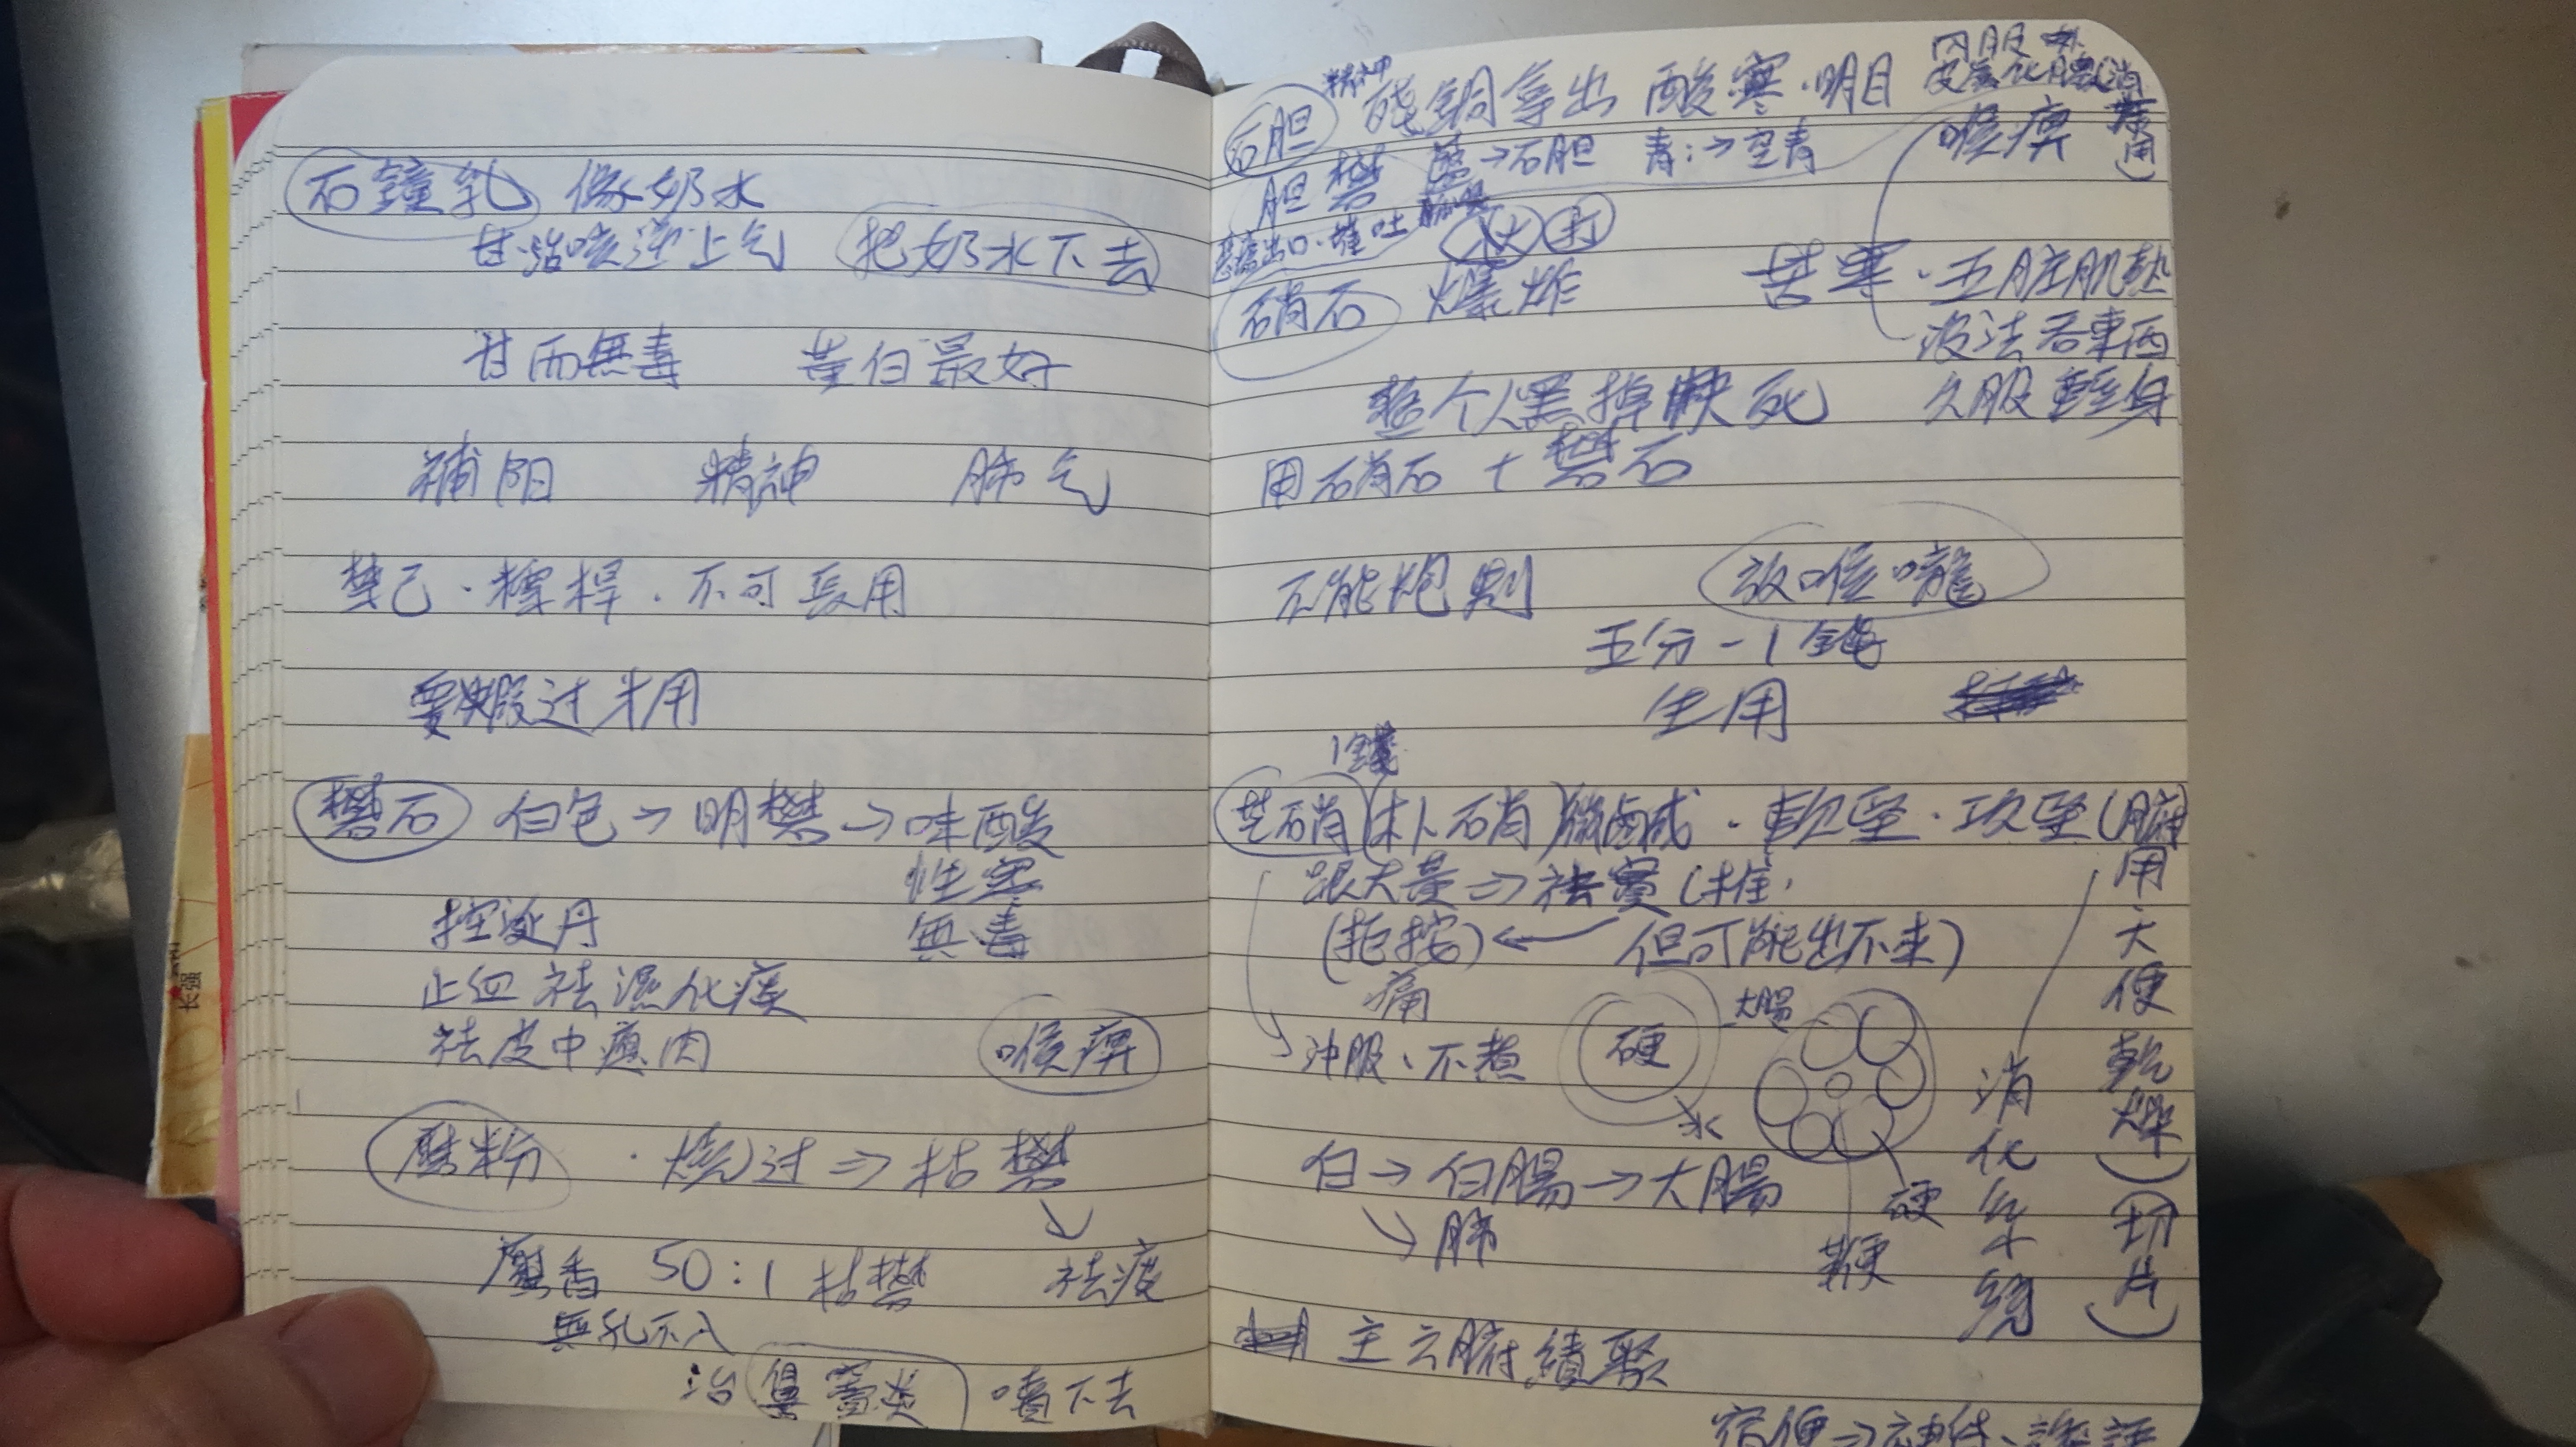 石鐘乳 像奶水
甘·治咳逆上气 把奶水下去
甘而無毒 黃白最好
補阳 精神 肺气
不可長用
要煅过才用
礬石 白色→明礬→味酸
性寒
無毒
控涎丹
止血祛濕化痰
祛皮中瘜肉 喉痺
磨粉 · 烧过⇒枯礬
麝香 50:1 枯礬 祛痰
無孔不入
治鼻竇炎 噴下去
長强
石胆 精神 硫銅等出 酸寒·明目
內服
喉痺
胆礬 藍→石胆 青:→空青
硝石 爆炸 苦寒·五脏肌熱
没法吞東西
整个人黑掉快死 久服輕身
用硝石+礬石
不能炮製 放喉嚨
五分-1錢
生用
1錢
芒硝(朴硝)微鹹·軟堅·攻堅(腑
用大便乾燥)
(切片)
跟大黃⇒祛實(推,
(拒按)← 但可能出不来)
痛
沖服、不煮 硬 大腸
水
消化系統
白→白腸→大腸 硬
→肺 鞭
主六腑積聚
宿便→神